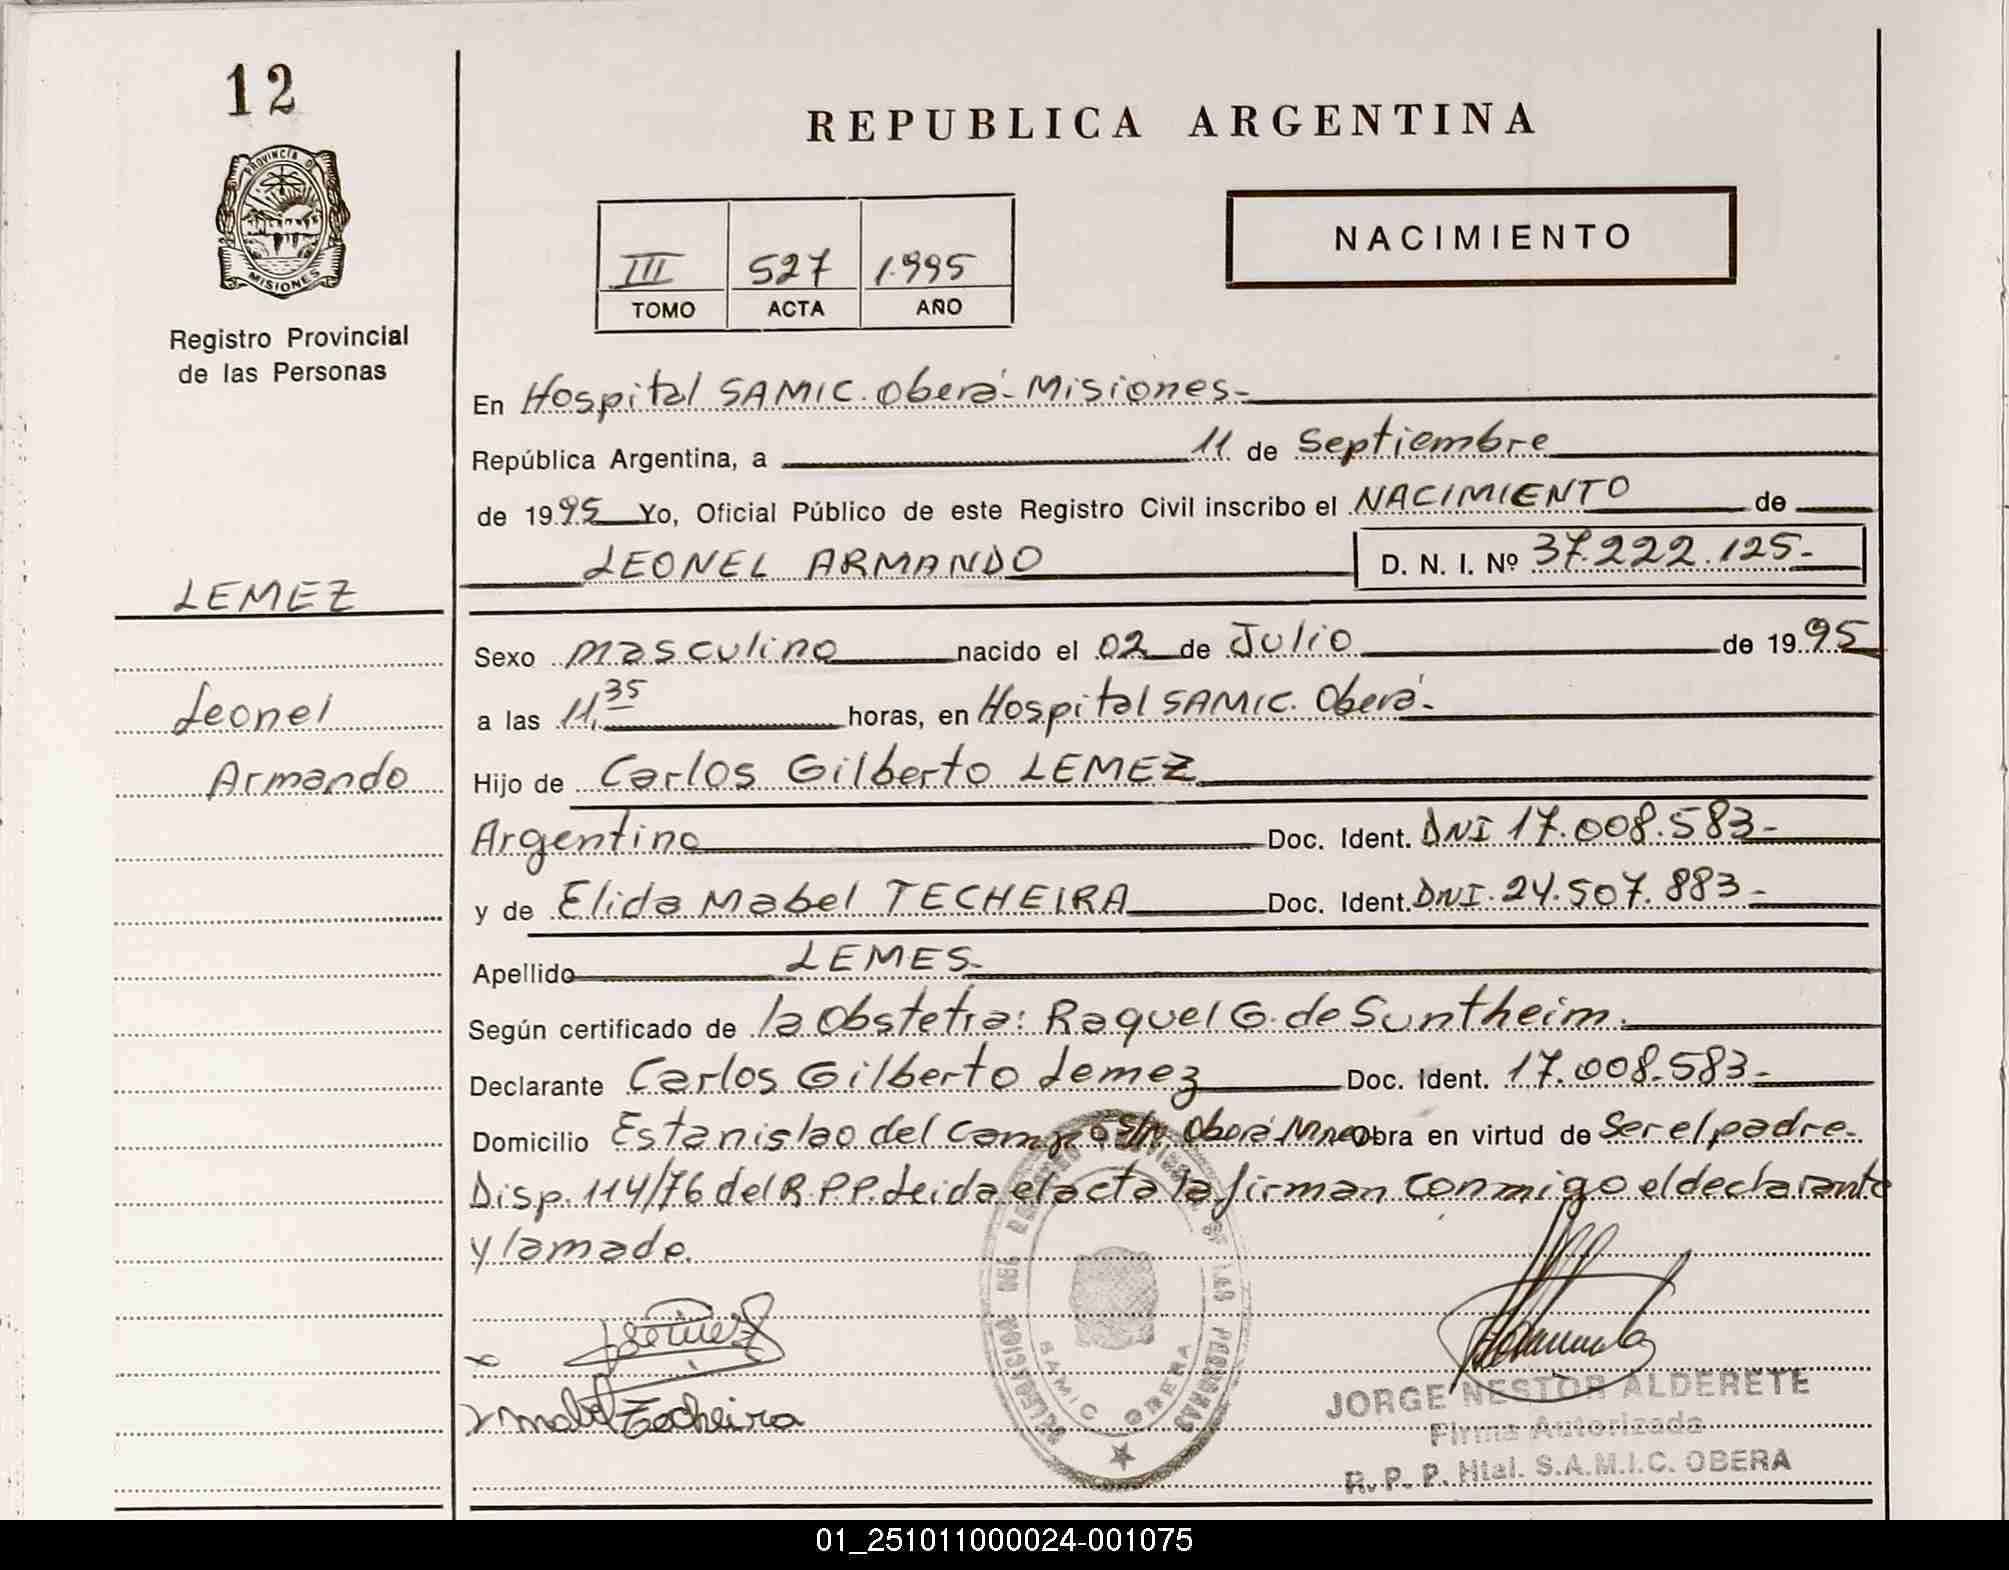 12
PROVINCIA DE
MISIONES
Registro Provincial
de las Personas
LEMEZ
Leonel
Armando
REPUBLICA ARGENTINA
III 527 1.995
TOMO ACTA AÑO
NACIMIENTO
En Hospital SAMIC. Oberá-Misiones-
República Argentina, a 11 de Septiembre
de 1995 Yo, Oficial Público de este Registro Civil inscribo el NACIMIENTO de
LEONEL ARMANDO D. N. I. Nº 37.222.125-
Sexo masculino nacido el 02 de Julio de 1995
a las 11,35 horas, en Hospital SAMIC. Oberá-
Hijo de Carlos Gilberto LEMEZ
Argentino Doc. Ident. DNI 17.008.583-
y de Elida Mabel TECHEIRA Doc. Ident. DNI. 24.507.883-
Apellido LEMES-
Según certificado de la Obstetra: Raquel G. de Suntheim.
Declarante Carlos Gilberto Lemez Doc. Ident. 17.008.583-
Domicilio Estanislao del Campo S/n Oberá Mnes Obra en virtud de Ser el padre-
Disp. 114/76 del R.P.P. Leida el acta la firman conmigo el declarante
y la made.
x Lemez
x Mabel Techeira
DELEGACION DEL REGISTRO PROVINCIAL DE LAS PERSONAS
SAMIC OBERA
JORGE NESTOR ALDERETE
Firma Autorizada
R. P. P. Htal. S.A.M.I.C. OBERA
01_251011000024-001075